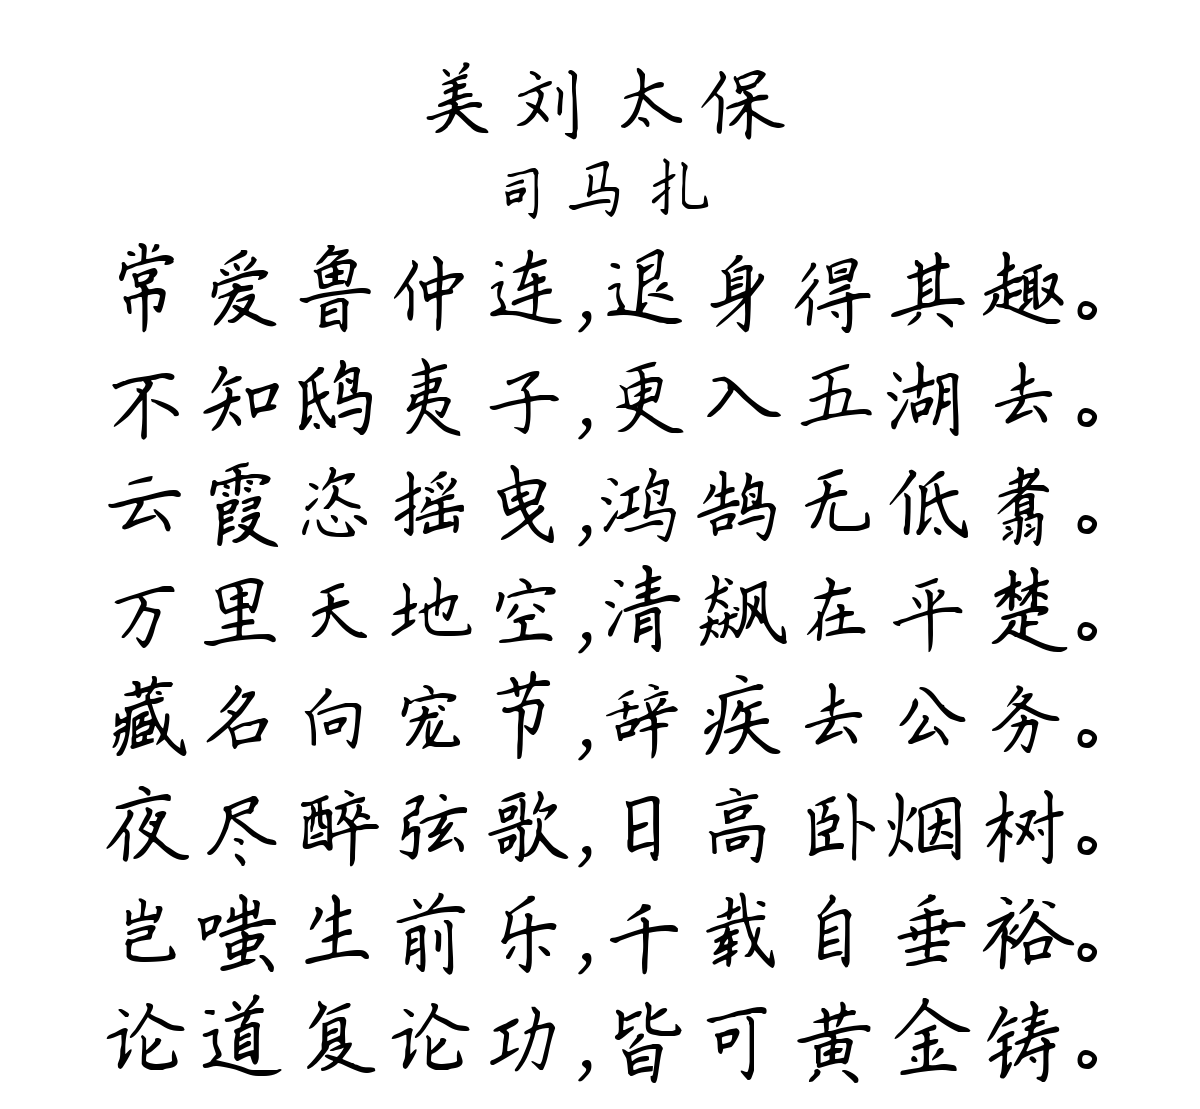 美刘太保
司马扎
常爱鲁仲连,退身得其趣。
不知鸱夷子,更入五湖去。
云霞恣摇曳,鸿鹄无低翥。
万里天地空,清飙在平楚。
藏名向宠节,辞疾去公务。
夜尽醉弦歌,日高卧烟树。
岂嗤生前乐,千载自垂裕。
论道复论功,皆可黄金铸。